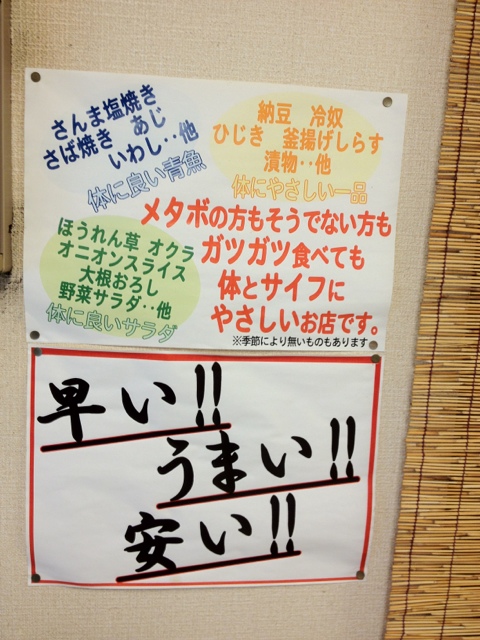 さんま塩焼き
さば焼き　あじ
いわし‥他
体に良い青魚
納豆　冷奴
ひじき　釜揚げしらす
漬物‥他
体にやさしい一品
メタボの方もそうでない方も
ガツガツ食べても
体とサイフに
やさしいお店です。
※季節により無いものもあります
ほうれん草 オクラ
オニオンスライス
大根おろし
野菜サラダ‥他
体に良いサラダ
早い!!
うまい!!
安い!!